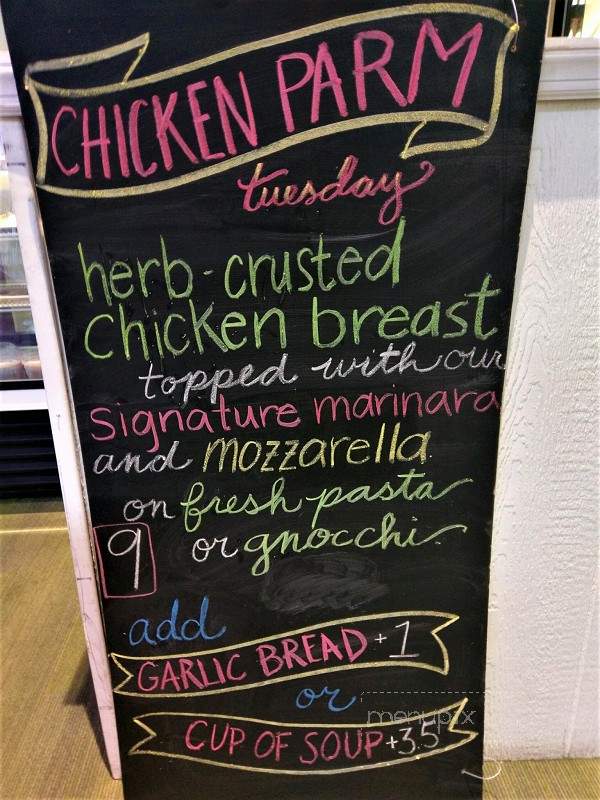 CHICKEN PARM
tuesday
herb-crusted
chicken breast
topped with our
signature marinara
and mozzarella
on fresh pasta
9 or gnocchi
add
GARLIC BREAD +1
or
menupix
CUP OF SOUP +3.5